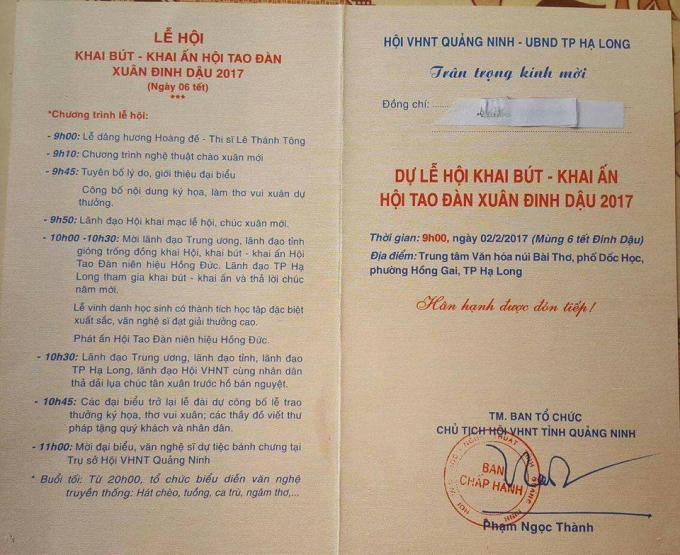 LỄ HỘI
KHAI BÚT - KHAI ẤN HỘI TAO ĐÀN
XUÂN ĐINH DẬU 2017
(Ngày 06 tết)
***
*Chương trình lễ hội:
- 9h00: Lễ dâng hương Hoàng đế - Thi sĩ Lê Thánh Tông
- 9h10: Chương trình nghệ thuật chào xuân mới
- 9h45: Tuyên bố lý do, giới thiệu đại biểu
Công bố nội dung ký họa, làm thơ vui xuân dự
thưởng.
- 9h50: Lãnh đạo Hội khai mạc lễ hội, chúc xuân mới.
- 10h00 -10h30: Mời lãnh đạo Trung ương, lãnh đạo tỉnh
gióng trống đồng khai Hội, khai bút - khai ấn Hội
Tao Đàn niên hiệu Hồng Đức. Lãnh đạo TP Hạ
Long tham gia khai bút - khai ấn và thả lời chúc
năm mới.
Lễ vinh danh học sinh có thành tích học tập đặc biệt
xuất sắc, văn nghệ sĩ đạt giải thưởng cao.
Phát ấn Hội Tao Đàn niên hiệu Hồng Đức.
- 10h30: Lãnh đạo Trung ương, lãnh đạo tỉnh, lãnh đạo
TP Hạ Long, lãnh đạo Hội VHNT cùng nhân dân
thả dải lụa chúc tân xuân trước hồ bán nguyệt.
- 10h45: Các đại biểu trở lại lễ đài dự công bố lễ trao
thưởng ký họa, thơ vui xuân; các thầy đồ viết thư
pháp tặng quý khách và nhân dân.
- 11h00: Mời đại biểu, văn nghệ sĩ dự tiệc bánh chưng tại
Trụ sở Hội VHNT Quảng Ninh
* Buổi tối: Từ 20h00, tổ chức biểu diễn văn nghệ
truyền thống: Hát chèo, tuồng, ca trù, ngâm thơ,...
HỘI VHNT QUẢNG NINH - UBND TP HẠ LONG
Trân trọng kính mời
Đồng chí:
DỰ LỄ HỘI KHAI BÚT - KHAI ẤN
HỘI TAO ĐÀN XUÂN ĐINH DẬU 2017
Thời gian: 9h00, ngày 02/2/2017 (Mùng 6 tết Đinh Dậu)
Địa điểm: Trung tâm Văn hóa núi Bài Thơ, phố Dốc Học,
phường Hồng Gai, TP Hạ Long
Hân hạnh được đón tiếp!
TM. BAN TỔ CHỨC
CHỦ TỊCH HỘI VHNT TỈNH QUẢNG NINH
BAN
CHẤP HÀNH
Phạm Ngọc Thành